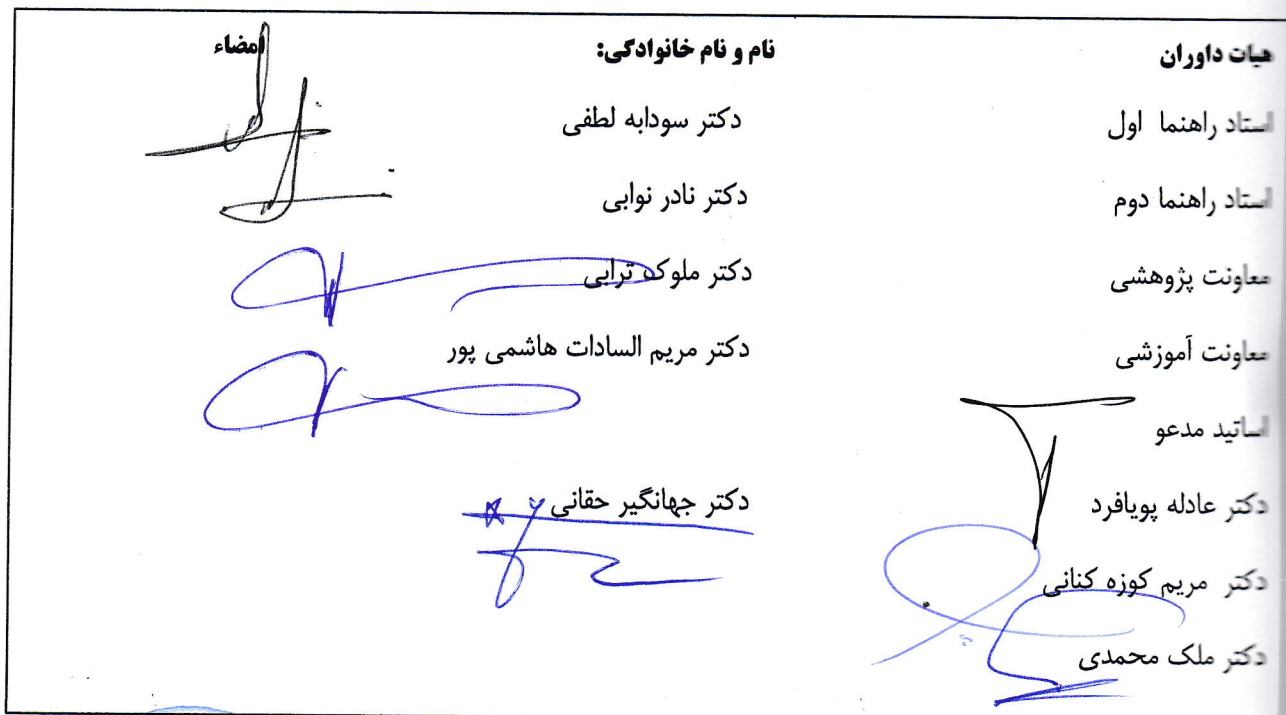 هیات داوران نام و نام خانوادگی: امضاء
استاد راهنما اول دکتر سودابه لطفی
استاد راهنما دوم دکتر نادر نوابی
معاونت پژوهشی دکتر ملوک ترابی
معاونت آموزشی دکتر مریم السادات هاشمی پور
اساتید مدعو
دکتر عادله پویافرد دکتر جهانگیر حقانی
دکتر مریم کوزه کنانی
دکتر ملک محمدی